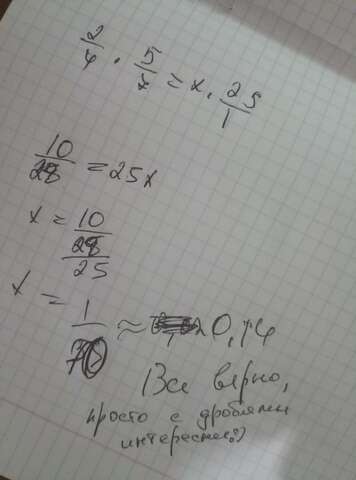 2/4 · 5/7 = x · 25/1
10/28 = 25x
x = 10/28/25
x = 1/70 ≈ 0,14
Все верно,
просто с дробями
интереснее:)